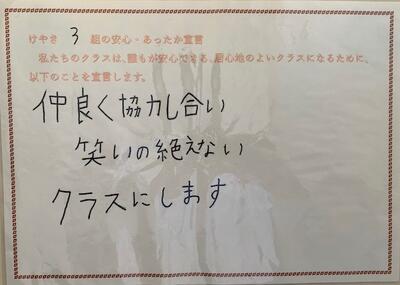 けやき 3 組の安心・あったか宣言
私たちのクラスは、誰もが安心できる、居心地のよいクラスになるために、
以下のことを宣言します。
仲良く協力し合い
笑いの絶えない
クラスにします